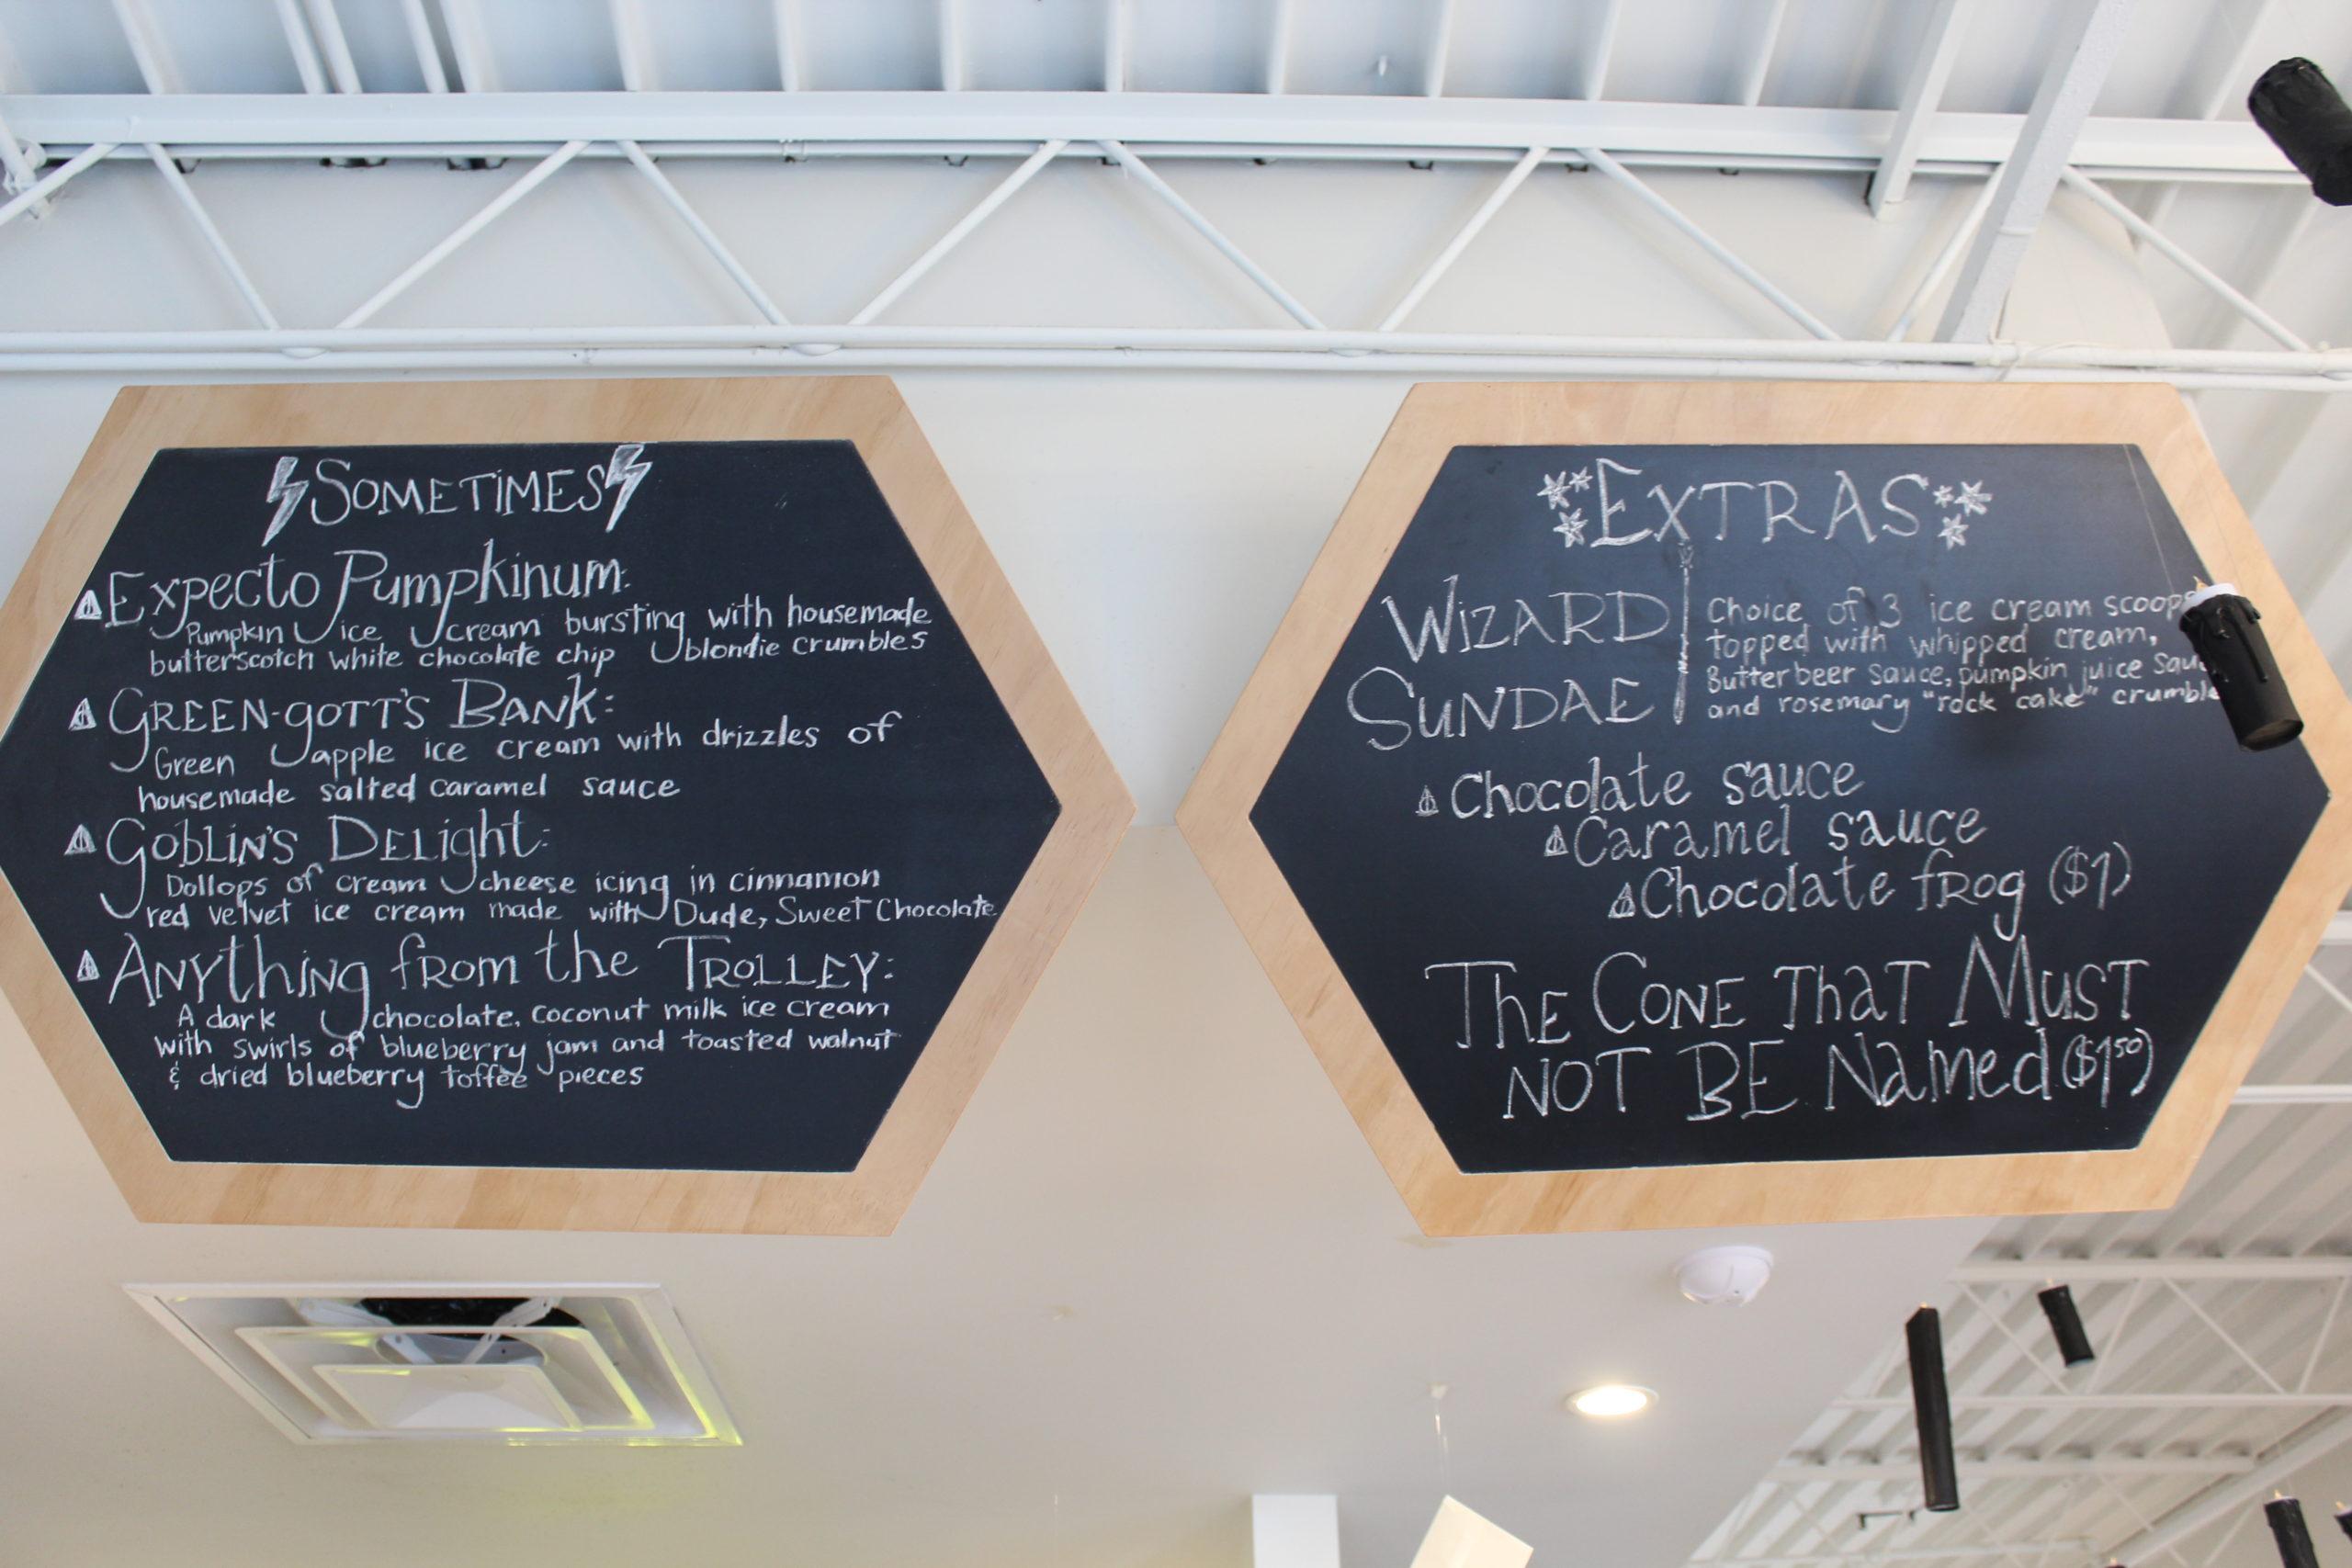 SOMETIMES
Expecto Pumpkinum:
Pumpkin ice cream bursting with housemade
butterscotch white chocolate chip blondie crumbles
GREEN-gOTT'S BANK:
Green apple ice cream with drizzles of
housemade salted caramel sauce
GobLiN'S DELight:
Dollops of cream cheese icing in cinnamon
red velvet ice cream made with Dude, Sweet Chocolate
ANYthiNg fROM the TROLLEY:
A dark chocolate, coconut milk ice cream
with swirls of blueberry jam and toasted walnut
& dried blueberry toffee pieces
EXTRAS
WiZARD
SUNDAE
Choice of 3 ice cream scoops
topped with whipped cream,
Butterbeer Sauce, pumpkin juice
and rosemary "rock cake" crumble
Chocolate sauce
Caramel sauce
Chocolate fROg ($1)
ThE CONE ThaT MuST
NOT BE Named ($1.50)